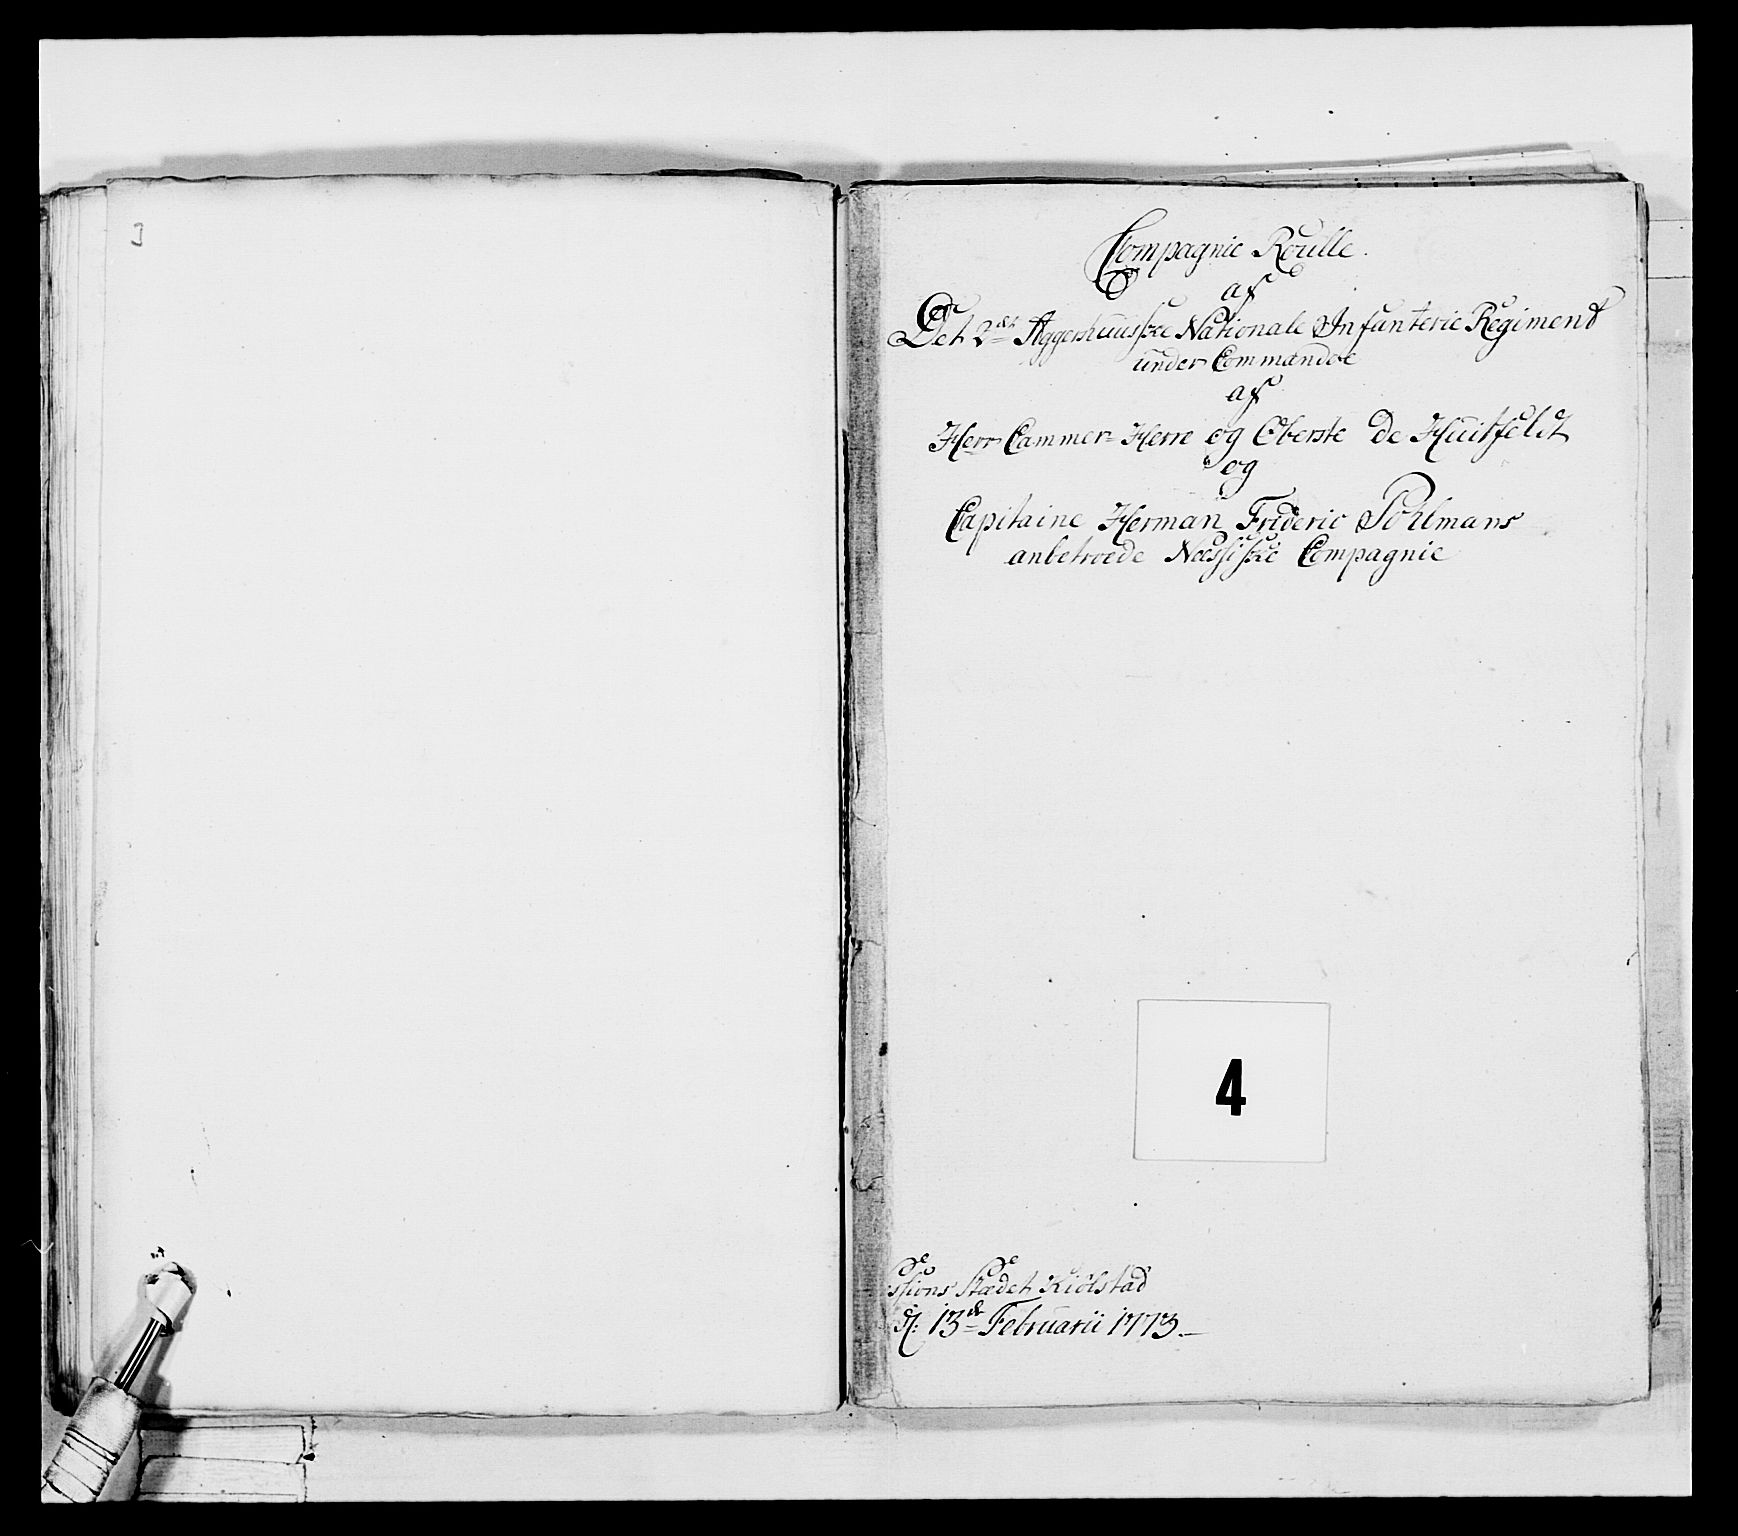 3
Compagnie Roulle.
af
Det 2det Aggershuusske Nationale Infanterie Regiment
under Commandoe
af
Herr Cammer-Herre og Oberste De Huitfeldt
og
Capitaine Herman Frideric Pohlmans
anbetroede Neessiske Compagnie
4
ssions Stædet Kiölstad
d: 13de Februarii 1773.